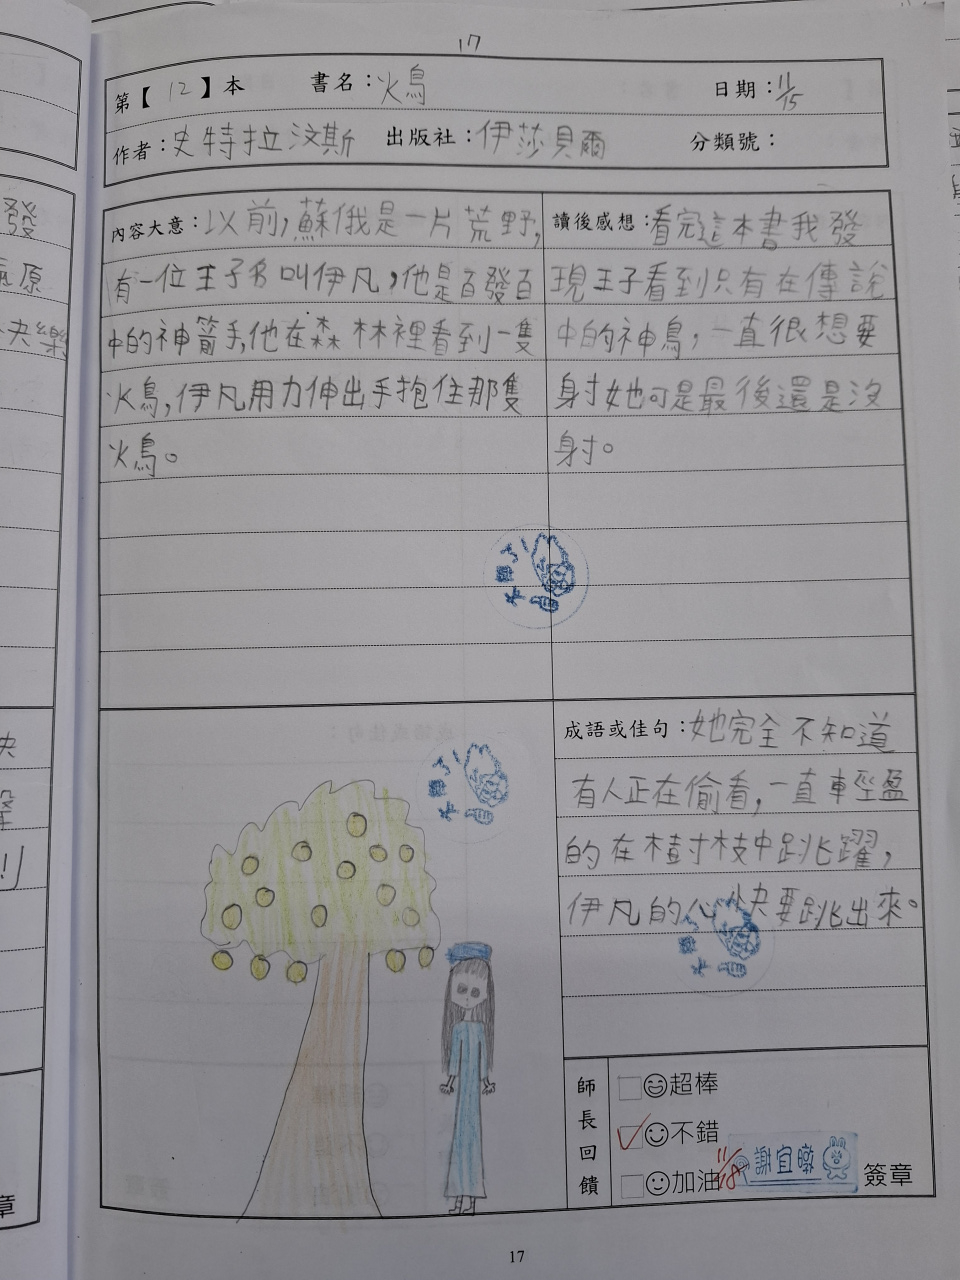 17
第【12】本 書名：火鳥 日期：11/15
作者：史特拉汶斯 出版社：伊莎貝爾 分類號：
內容大意：以前，蘇俄是一片荒野，
有一位王子名叫伊凡，他是百發百
中的神箭手，他在森林裡看到一隻
火鳥，伊凡用力伸出手抱住那隻
火鳥。
讀後感想：看完這本書我發
現王子看到只有在傳說
中的神鳥，一直很想要
射她可是最後還是沒
射。
成語或佳句：她完全不知道
有人正在偷看，一直輕盈
的在樹枝中跳躍，
伊凡的心快要跳出來。
師長回饋
超棒
不錯
加油
11/18
謝宜
簽章
17
發
原
快樂
章